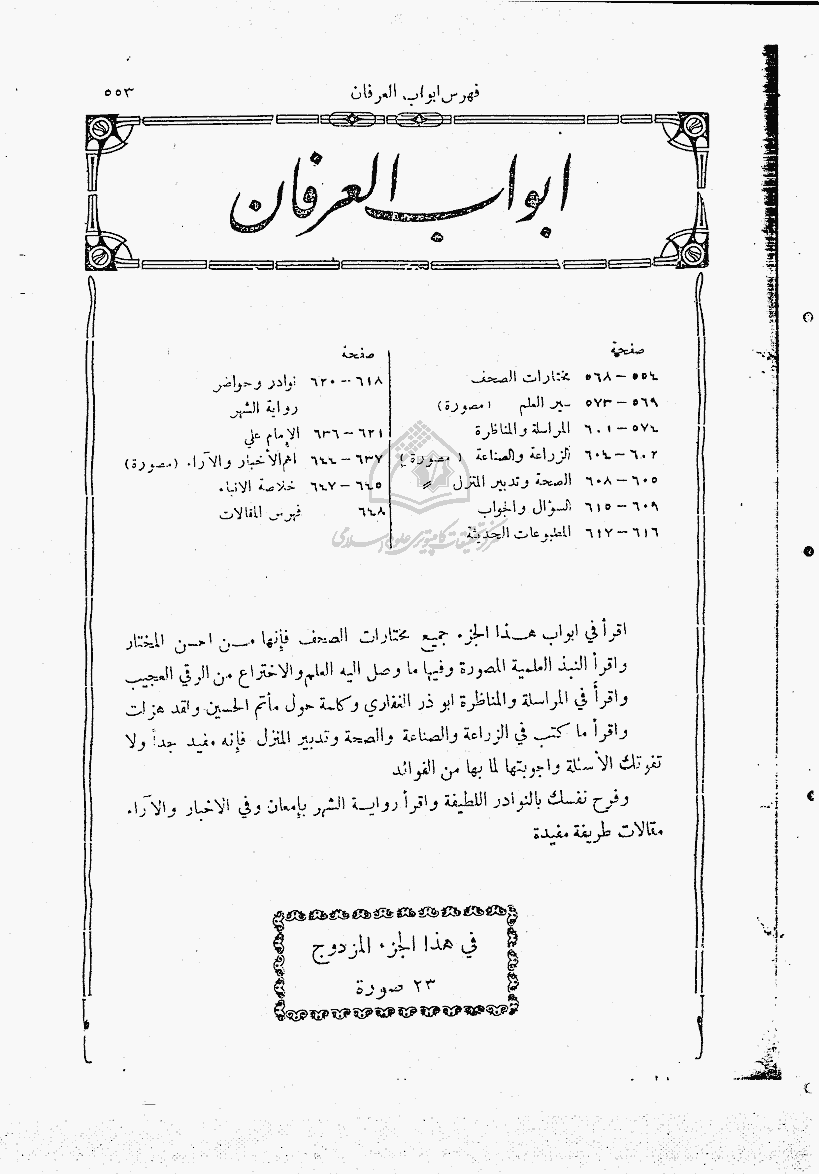 فهرس ابواب العرفان ٥٥٣
ابواب العرفان
صفحة
٥٥٤ – ٥٦٨ مختارات الصحف
٥٦٩ – ٥٧٣ سير العلم (مصورة)
٥٧٤ – ٦٠١ المراسلة والمناظرة
٦٠٢ – ٦٠٤ الزراعة والصناعة (مصورة)
٦٠٥ – ٦٠٨ الصحة وتدبير المنزل »
٦٠٩ – ٦١٥ السؤال والجواب
٦١٦ – ٦١٧ المطبوعات الحديثة
صفحة
٦١٨ – ٦٢٠ نوادر وحواضر
رواية الشهر
٦٢١ – ٦٣٦ الإمام علي
٦٣٧ – ٦٤٤ اهم الأخبار والآراء (مصورة)
٦٤٥ – ٦٤٧ خلاصة الانباء
٦٤٨ فهرس المقالات
مركز تحقيقات كامپيوتری علوم اسلامی
اقرأ في ابواب هذا الجزء جميع مختارات الصحف فإنها من احسن المختار
واقرأ النبذ العلمية المصورة وفيها ما وصل اليه العلم والاختراع من الرقي العجيب
واقرأ في المراسلة والمناظرة ابو ذر الغفاري وكلمة حول مأتم الحسين ولقد هزلت
واقرأ ما كتب في الزراعة والصناعة والصحة وتدبير المنزل فإنه مفيد جداً ولا
تفوتك الأسئلة واجوبتها لما بها من الفوائد
وفرح نفسك بالنوادر اللطيفة واقرأ رواية الشهر بإمعان وفي الاخبار والآراء
مقالات طريفة مفيدة
في هذا الجزء المزدوج
٢٣ صورة